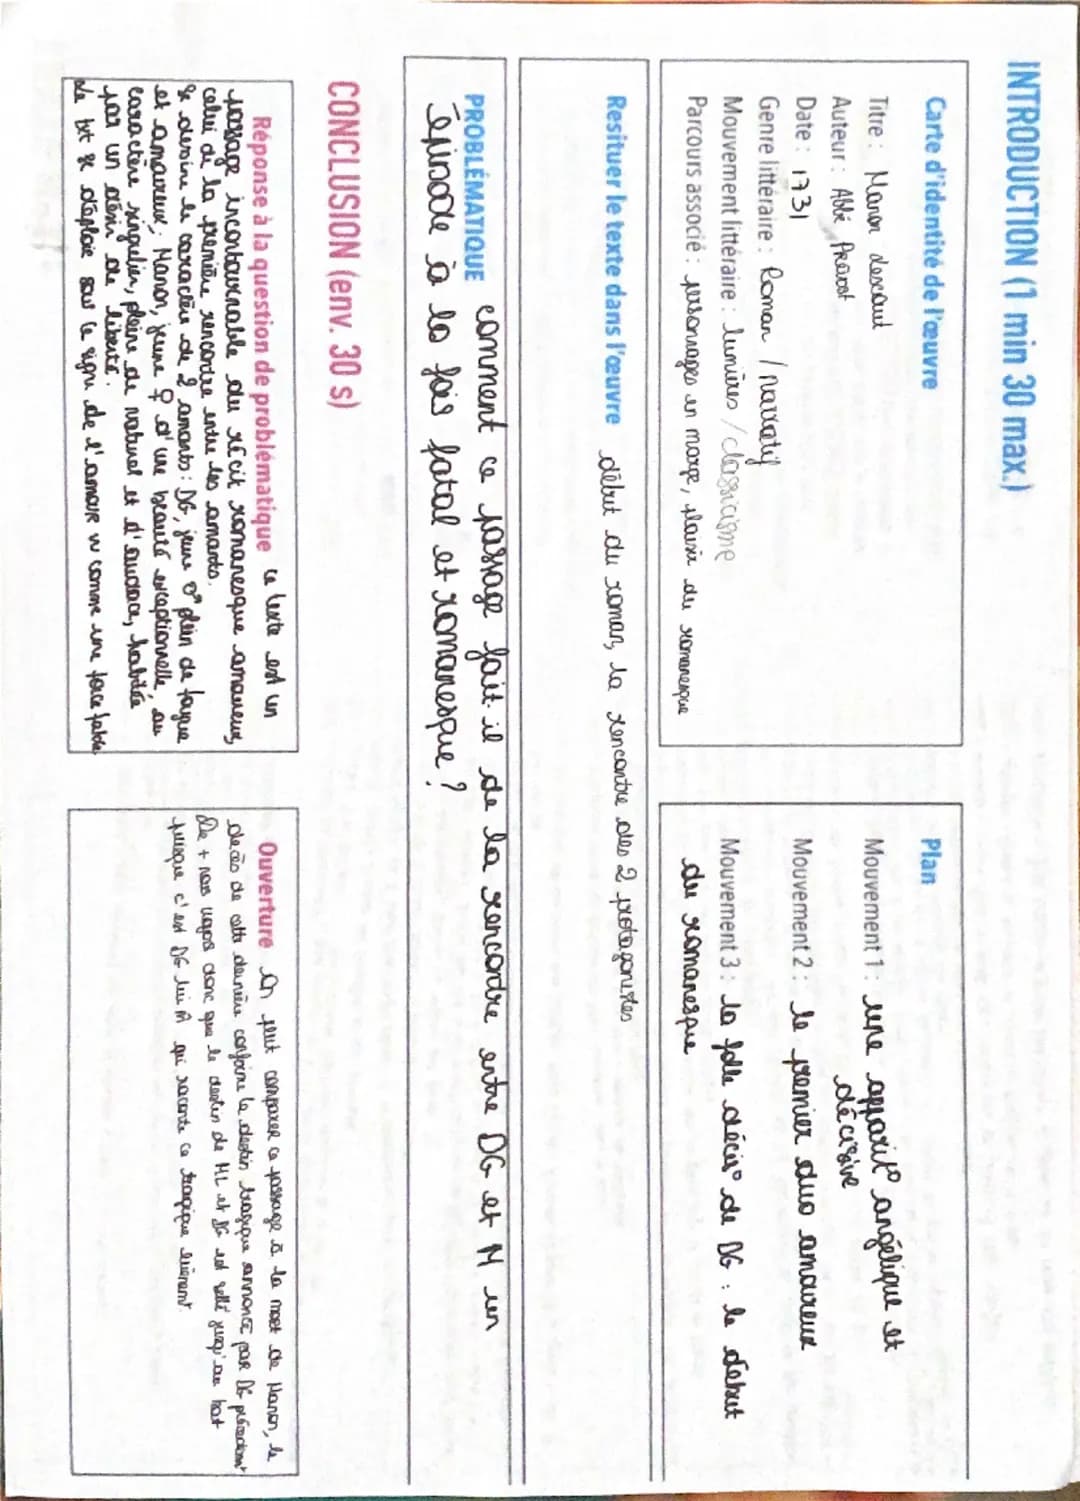 INTRODUCTION (1 min 30 max.)
Carte d'identité de l'œuvre
Titre : Manon Lescaut
Auteur : Abbé Prévost
Date : 1731
Genre littéraire : Roman / narratif
Mouvement littéraire : lumières / classicisme
Parcours associé : personnages en marge, plaisir du romanesque
Plan
Mouvement 1 : une apparit° angélique et
décisive
Mouvement 2 : le premier duo amoureux
Mouvement 3 : la folle décis° de DG : le début
du romanesque
Resituer le texte dans l'œuvre début du roman, la rencontre des 2 protagonistes
PROBLÉMATIQUE comment ce passage fait-il de la rencontre entre DG et M un
épisode à la fois fatal et romanesque ?
CONCLUSION (env. 30 s)
Réponse à la question de problématique ce texte est un
passage incontournable du récit romanesque amoureux,
celui de la première rencontre entre les amants.
se dessine le caractère de 2 amants : DG, jeune ♂ plein de fougue
et amoureux ; Manon, jeune ♀ d'une beauté exceptionnelle, au
caractère singulier, pleine de naturel et d'audace, habitée
par un désir de liberté.
le txt se déploie sous le signe de l'amour vu comme une force fatale
Ouverture on peut comparer ce passage à la mort de Manon, le
décès de cette dernière confirme le destin tragique annoncé par DG précédemt
De + nous voyons donc que le destin de ML et DG est scellé jusqu'au bout
puisque c'est DG lui m̂ qui raconte ce tragique évènemt.